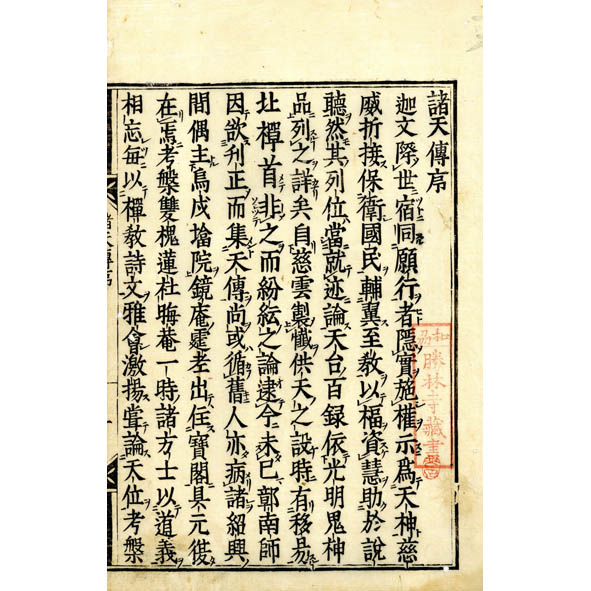 諸天傳序
迦文際世宿同願行者隱實施權示爲天神慈
威折接保衛國民輔翼至教以福資慧助於說
聽然其列位當就迹論天台百録依光明鬼神
品列之詳矣自慈雲製懺供天之設時有移易
北禪首非之而紛紜之論逮今未已鄣南師
因欲刋正而集天傳尚或循舊人亦病諸紹興
間偶主烏戍院鏡庵霆老出住寶閣具元
在焉考槃雙槐蓮社晦庵一時諸方士以道義
相忘每以禪教詩文雅會激揚甞論天位考槃
諸天傳序
和
勝林寺藏書